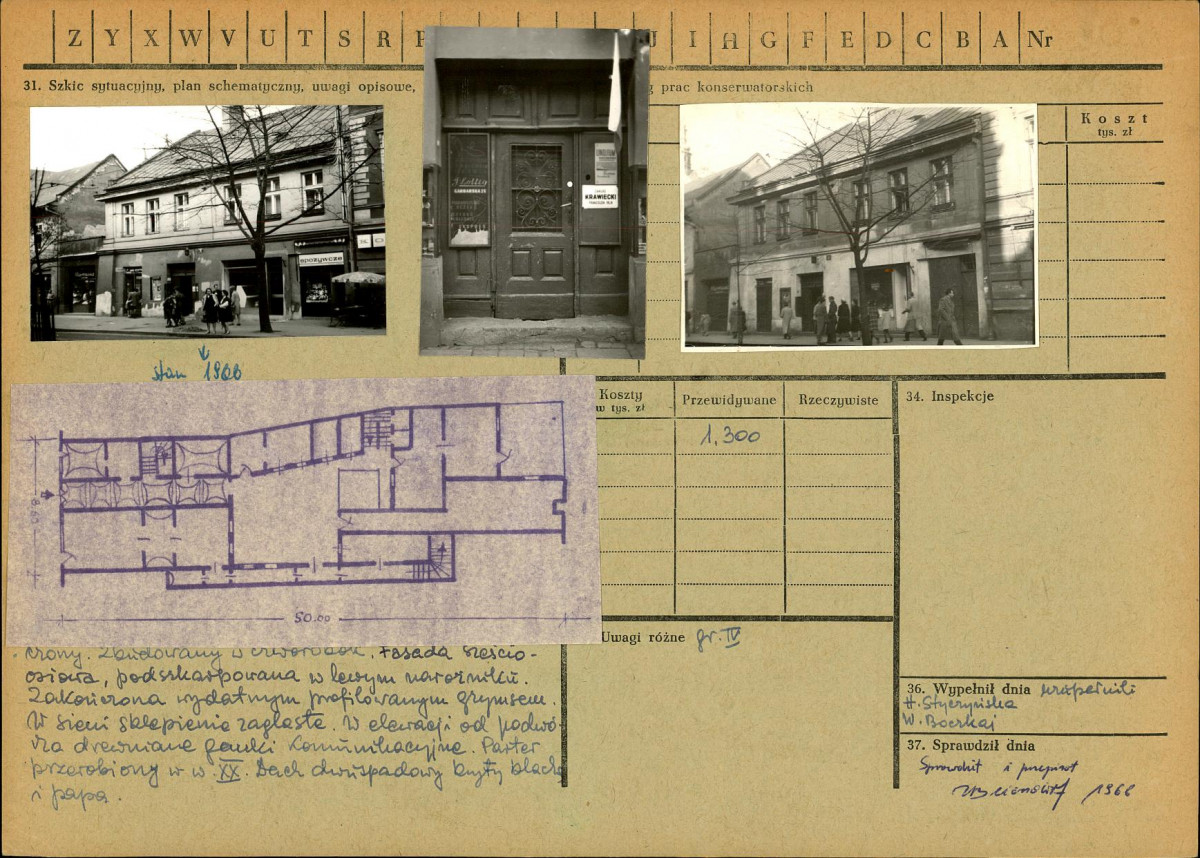 Z Y X W V U T S R P U I H G F E D C B A Nr
31. Szkic sytuacyjny, plan schematyczny, uwagi opisowe, g prac konserwatorskich
Koszt
tys. zł
spożywcze
KRAWIECKI
stan 1966
Koszty
w tys. zł
Przewidywane
Rzeczywiste
1,300
34. Inspekcje
8.60
50.00
Uwagi różne gr. IV
Zbudowany w czworobok. Fasada sześcio-
osiowa, podszkarpowana w lewym narożniku.
Zakończona wydatnym profilowanym gzymsem.
W sieni sklepienie zaglaste. W elewacji od podwó-
rza drewniane ganki komunikacyjne. Parter
przerobiony w w. XX. Dach dwuspadowy kryty blachą
i papą.
36. Wypełnił dnia wypełnili
H. Styczyńska
W. Boczkaj
37. Sprawdził dnia
Sprawdził i przejrzał
1966